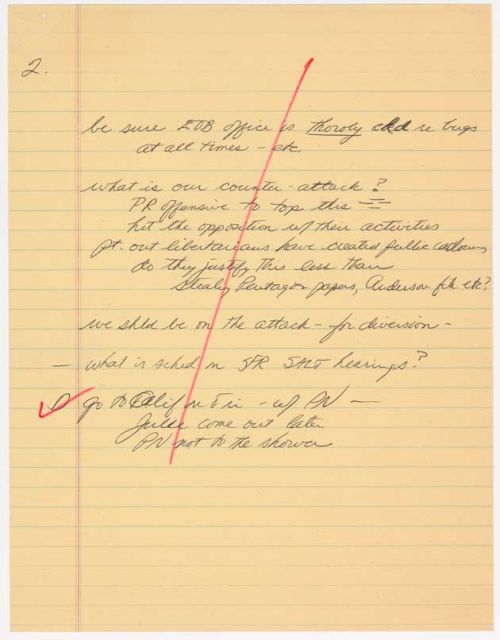 2.
be sure EOB office is thoroly ckd re bugs
at all times - etc
what is our counter-attack?
PR offensive to top this -
hit the opposition w/ their activities
pt. out libertarians have created public
do they justify this less than
stealing Pentagon papers, Anderson file etc?
we shld be on the attack - for diversion -
- what is sched on SFR SALT hearings?
go to Calif on Fri - w/ PN -
Julie come out later
PN not to the shower